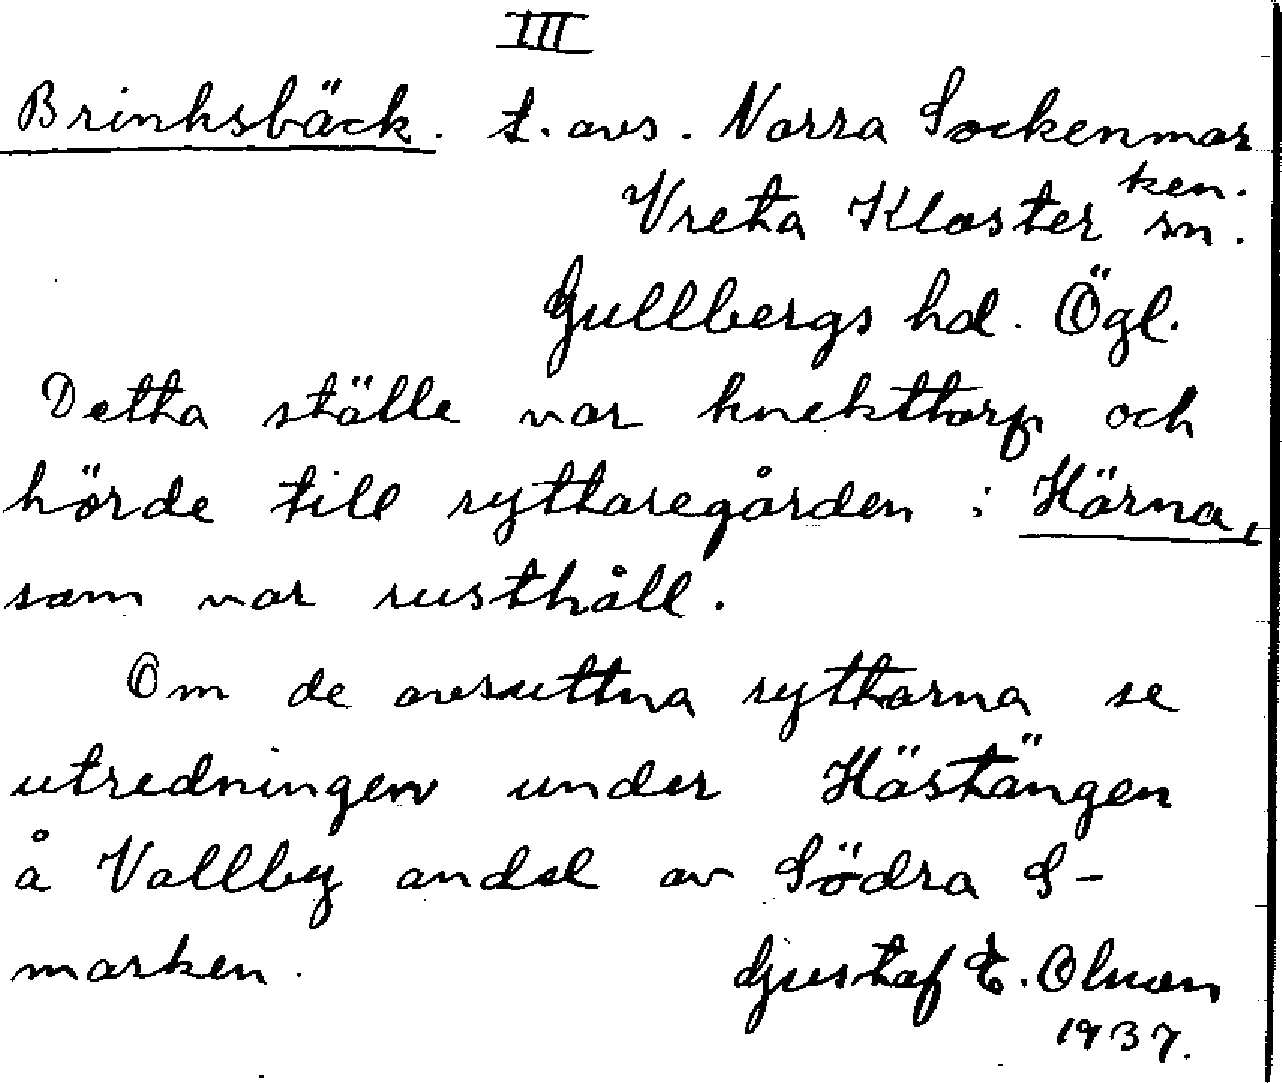 III
Brinksbäck. t. avs. Norra Sockenmar
ken.
Vreta Kloster sn.
Gullbergs hd. Ögl.
Detta ställe var knekttorp och
hörde till ryttaregården i Härna,
som var rusthåll.
Om de avsuttna ryttarna se
utredningen under Hästängen
å Vallby andel av Södra S-
marken.
Gustaf E. Olson
1937.